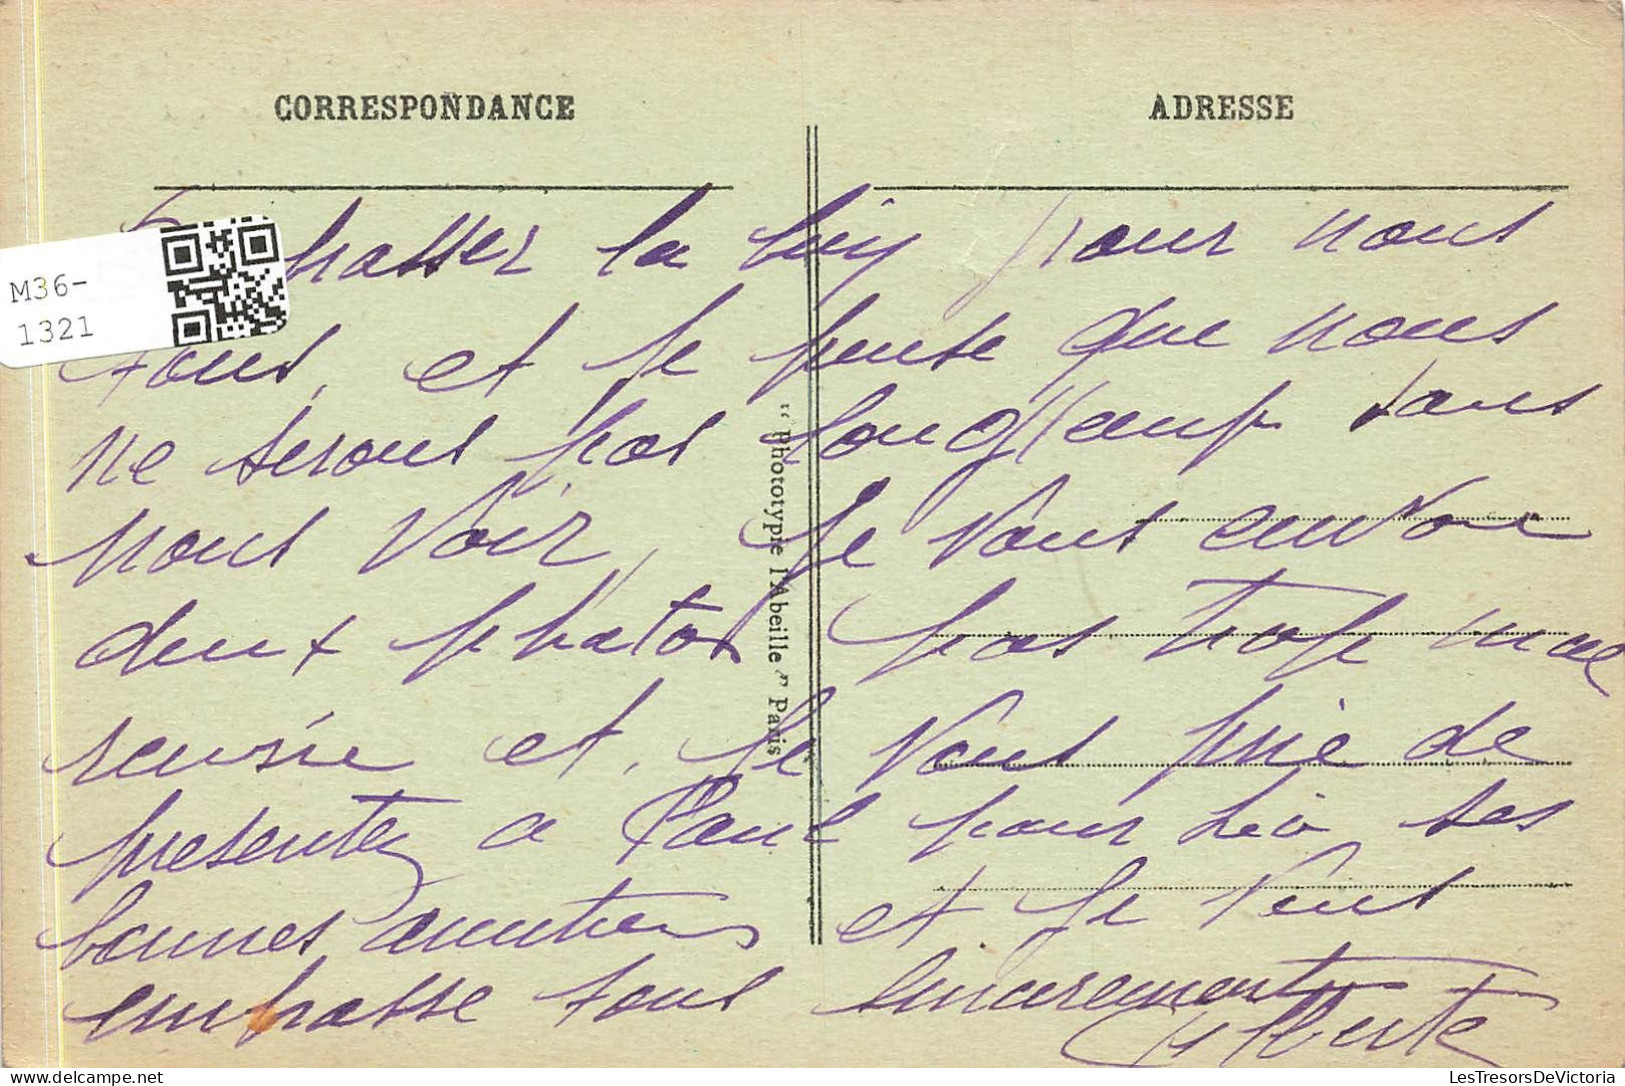 CORRESPONDANCE
ADRESSE
M36-
1321
Embrasser la bien pour nous
tous, et je pense que nous
ne serons pas longtemps sans
nous voir, Je vous envoie
deux photos pas trop mal
reusie et je vous prie de
presentez a Paul pour ses
bonnes amities et je vous
embrasse tous sincerement
Gilberte
"Phototypie l'Abeille" Paris
LesTresorsDeVictoria
delcampe.net